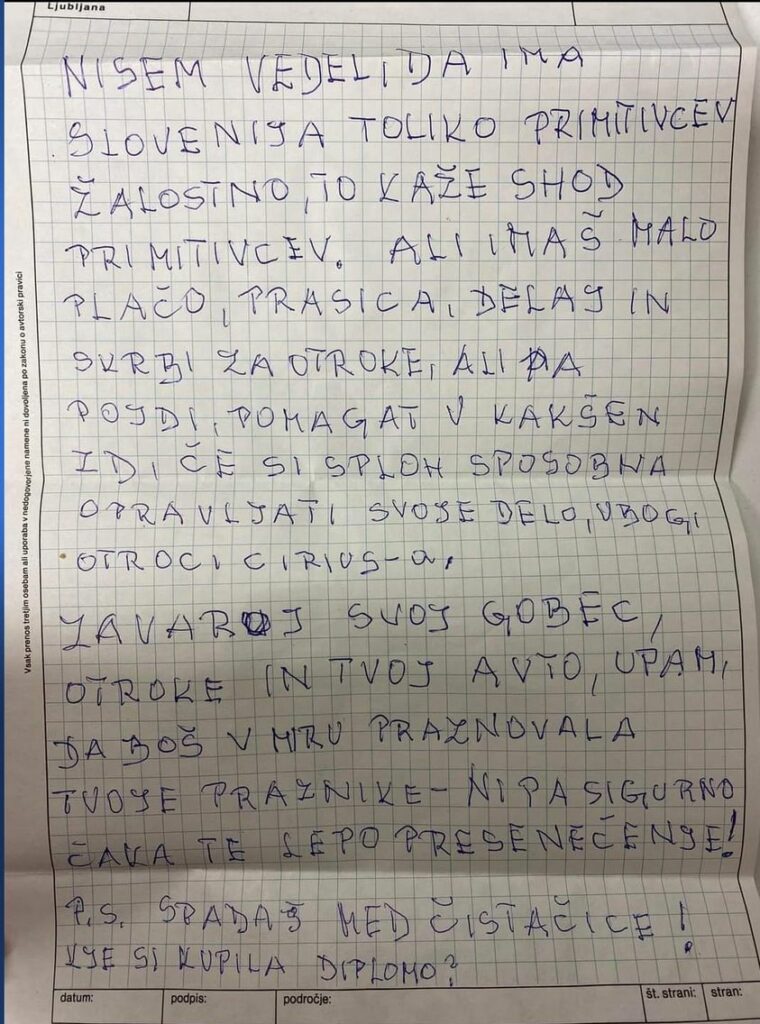 Ljubljana
NISEM VEDELI DA IMA
SLOVENIJA TOLIKO PRIMITIVCEV
ŽALOSTNO, TO KAŽE SHOD
PRIMITIVCEV. ALI IMAŠ MALO
PLAČO, PRASICA, DELAJ IN
SKRBI ZA OTROKE, ALI PA
POJDI, POMAGAT V KAKŠEN
ZD, ČE SI SPLOH SPOSOBNA
OPRAVLJATI SVOJE DELO, UBOGI
OTROCI CIRIUS-a.
ZAVARUJ SVOJ GOBEC,
OTROKE IN TVOJ AVTO, UPAM,
DA BOŠ V MIRU PRAZNOVALA
TVOJE PRAZNIKE- NI PA SIGURNO
ČAKA TE LEPO PRESENEČENJE!
P.S. SPADAŠ MED ČISTAČICE!
KJE SI KUPILA DIPLOMO?
datum: podpis: področje: št. strani: stran:
Vsak prenos tretjim osebam ali uporaba v nedogovorjene namene ni dovoljena po zakonu o avtorski pravici